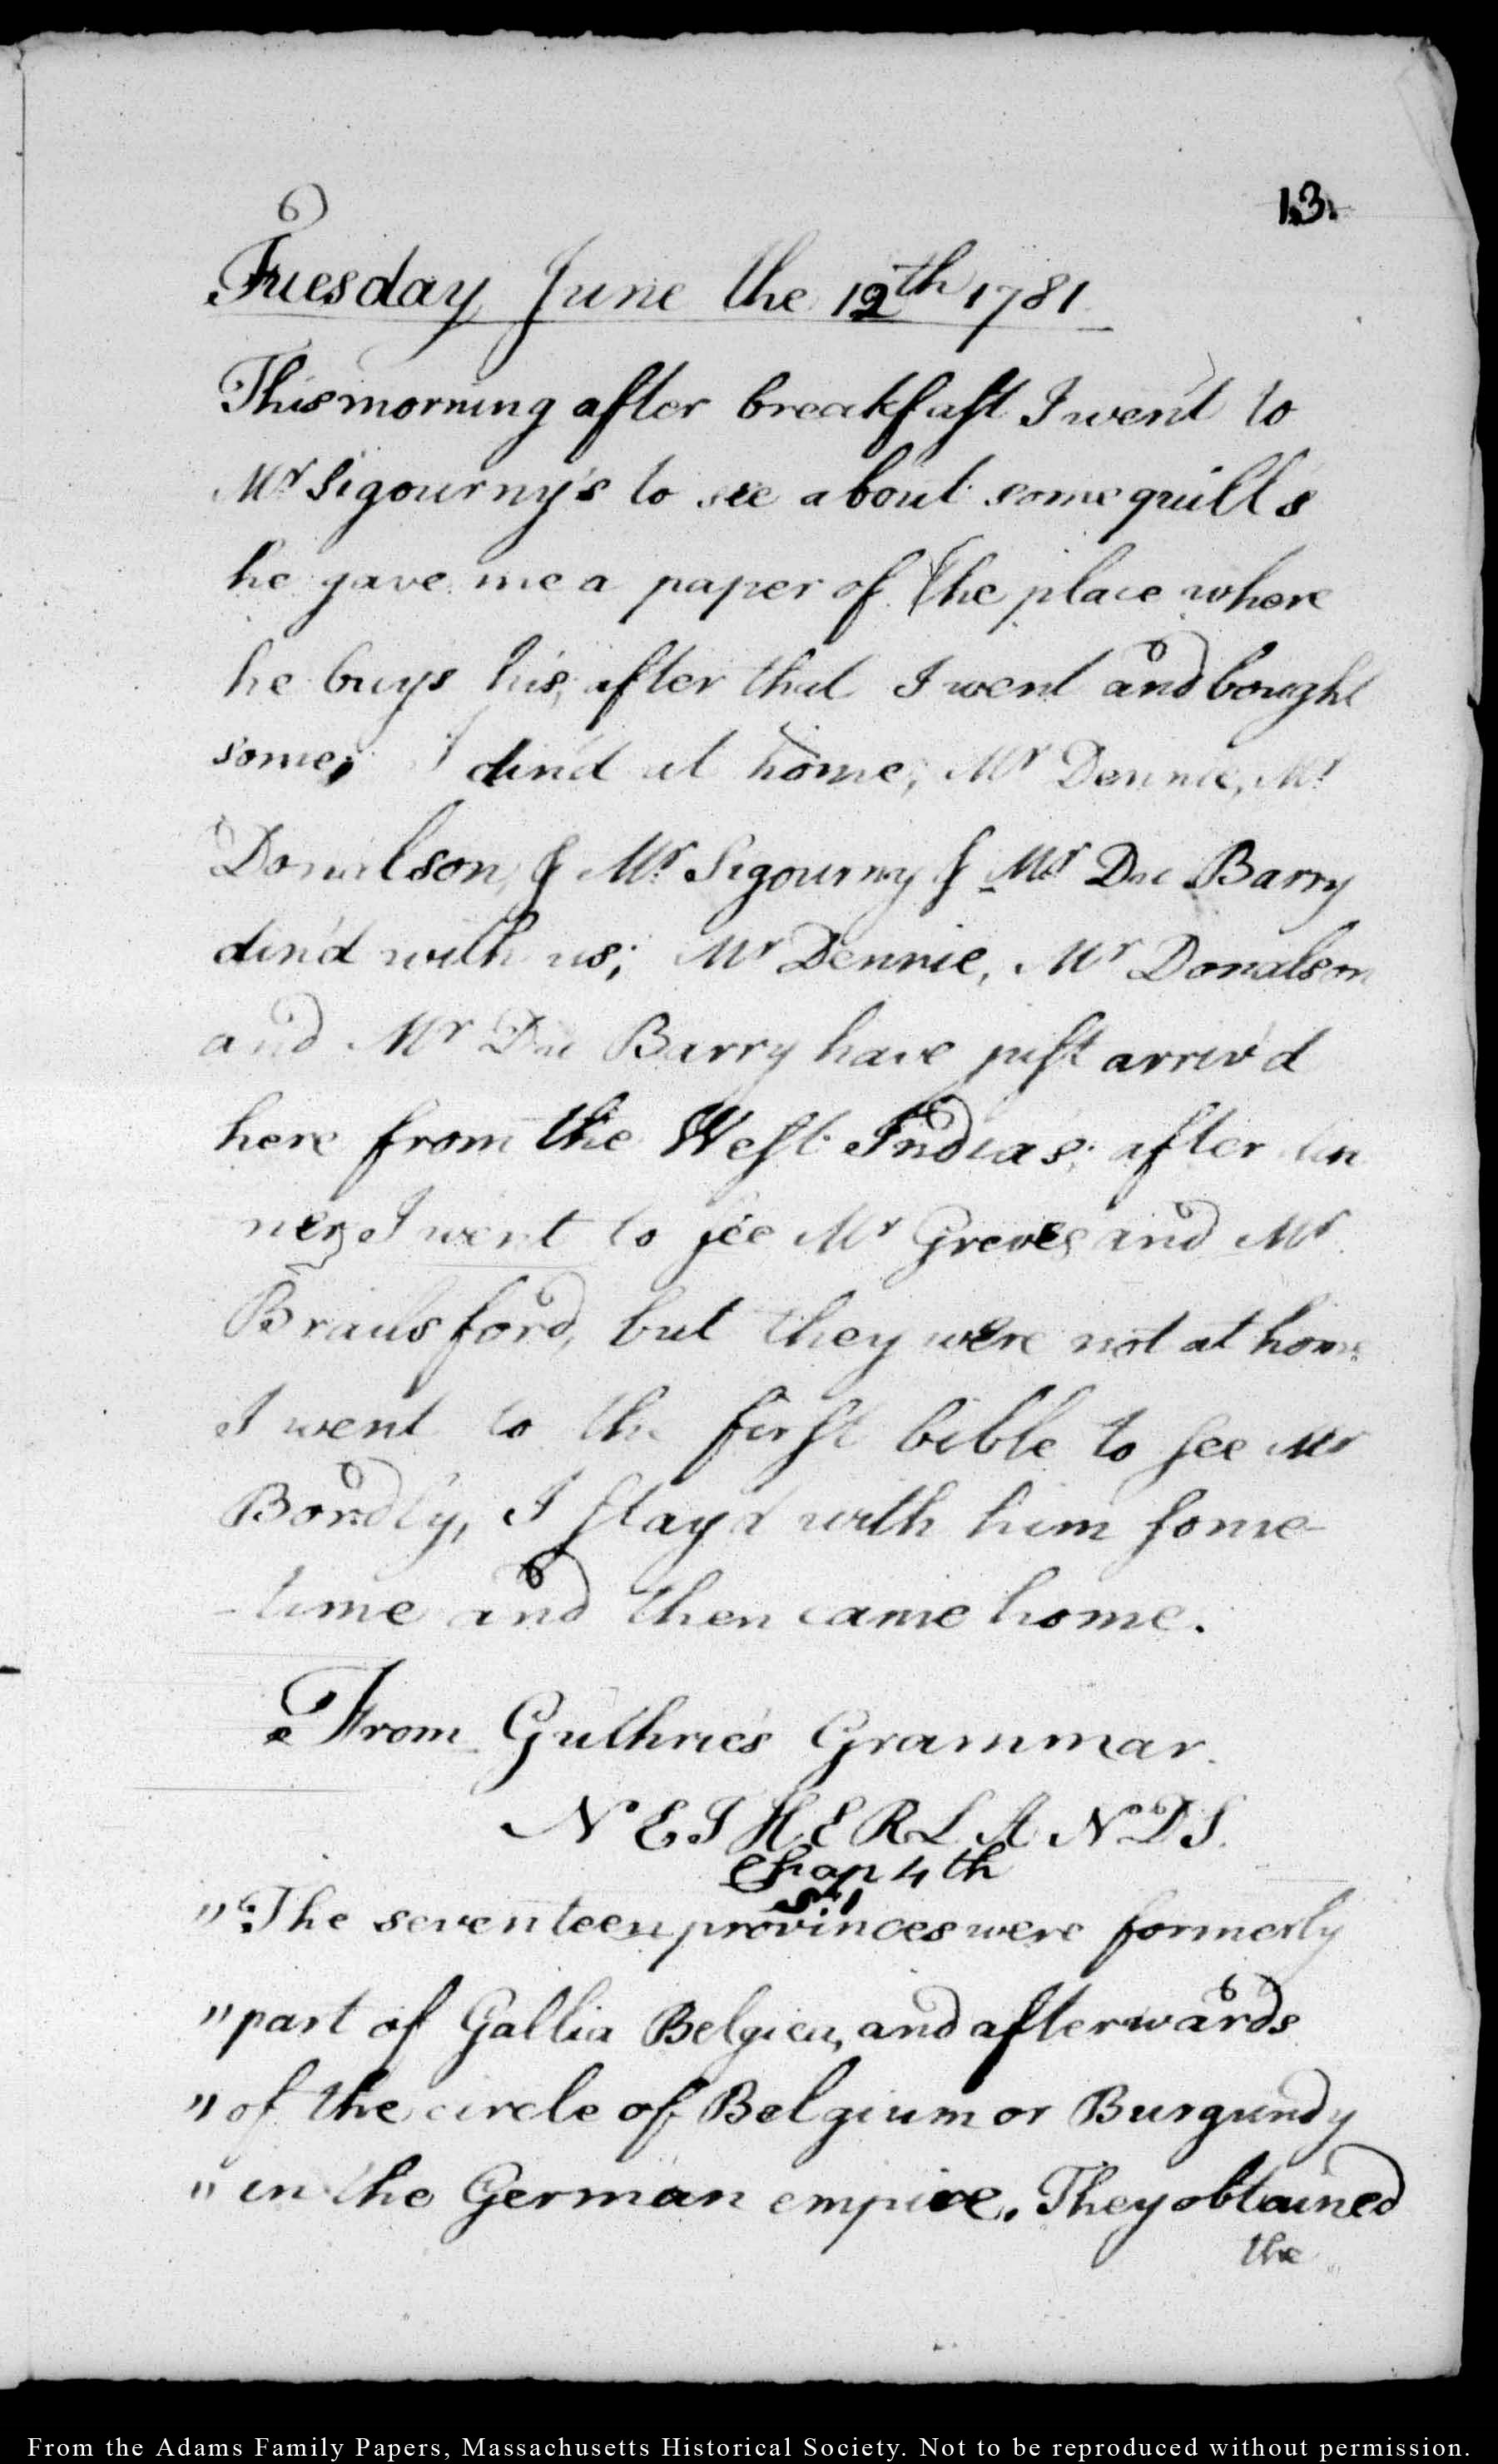 13.
Tuesday June the 12th 1781
This morning after breakfast I went to
Mr Sigourny's to see about some quills
he gave me a paper of the place where
he buys his; after that I went and bought
some; I din'd at home; Mr Dennie, Mr
Donalson, & Mr Sigourny & Mr Du Barry
din'd with us; Mr Dennie, Mr Donalson
and Mr Du Barry have just arriv'd
here from the West Indias; after din
ner I went to see Mr Greves and Mr
Brailsford, but they were not at home
I went to the first bible to see Mr
Bordly, I stay'd with him some-
-time and then came home.
From Guthrie's Grammar.
NETHERLANDS.
Chap 4th
"The seventeen provinces were formerly
"part of Gallia Belgica, and afterwards
"of the circle of Belgium or Burgundy
"in the German empire. They obtained
the
From the Adams Family Papers, Massachusetts Historical Society. Not to be reproduced without permission.